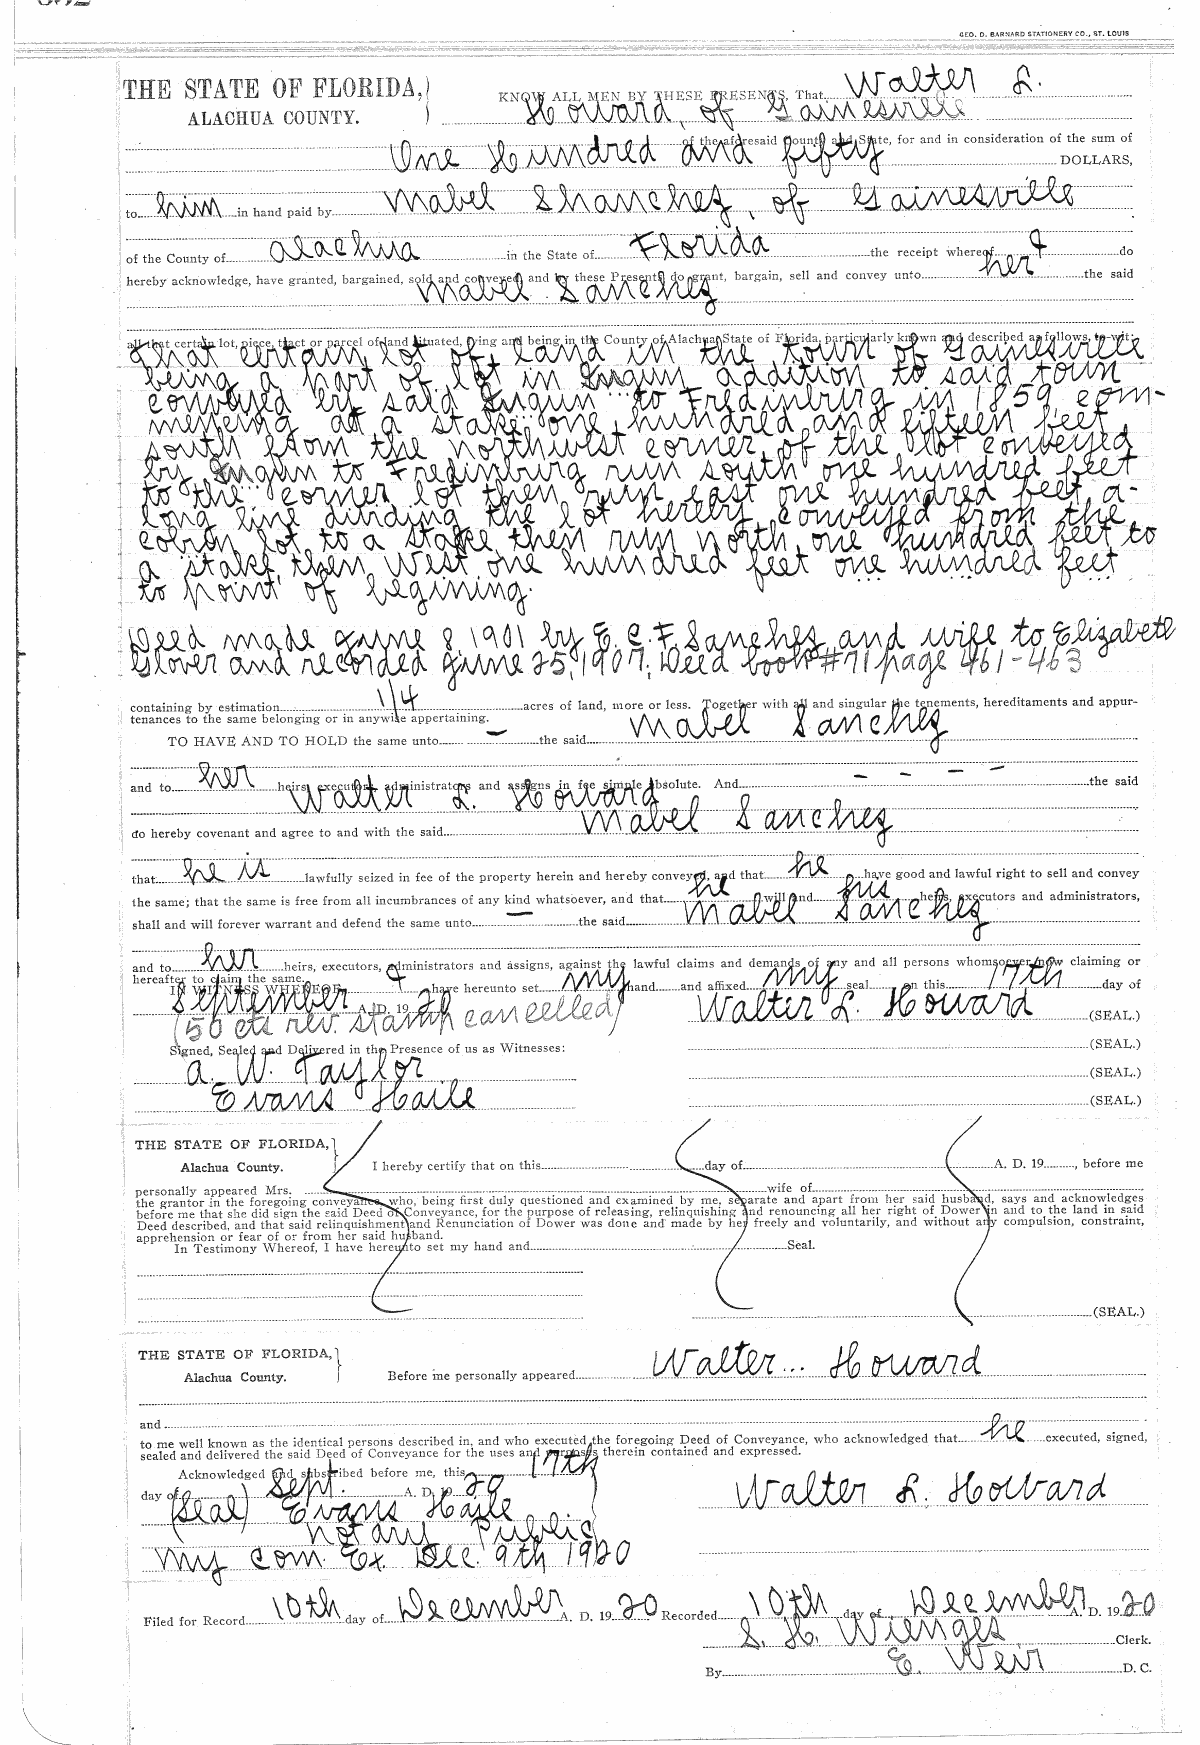 GEO. D. BARNARD STATIONERY CO., ST. LOUIS
THE STATE OF FLORIDA,
ALACHUA COUNTY.
KNOW ALL MEN BY THESE PRESENTS, That Walter L.
Howard, of Gainesville
of the aforesaid County and State, for and in consideration of the sum of
One Hundred and fifty DOLLARS,
to him in hand paid by Mabel Shanchez, of Gainesville
of the County of Alachua in the State of Florida the receipt whereof I do
hereby acknowledge, have granted, bargained, sold and conveyed and by these Presents do grant, bargain, sell and convey unto her the said
Mabel Sanchez
all that certain lot, piece, tract or parcel of land situated, lying and being in the County of Alachua State of Florida, particularly known and described as follows, to-wit:
That certain lot of land in the town of Gainesville
being a part of lot in Ingun addition to said town
conveyed by said Ingun to Fredinburg in 1859 com-
mencing at a stake one hundred and fifteen feet
south from the northwest corner of the lot conveyed
by Ingun to Fredinburg run south one hundred feet
to the corner lot then run east one hundred feet a-
long line dividing the lot hereby conveyed from the
lot to a stake then run north one hundred feet to
a stake, then West one hundred feet one hundred feet
to point of begining.
Deed made June 8, 1901 by E. C. F. Sanchez and wife to Elizabeth
Glover and recorded June 25, 1907, Deed book #71 page 461-463
containing by estimation 1/4 acres of land, more or less. Together with all and singular the tenements, hereditaments and appur-
tenances to the same belonging or in anywise appertaining.
TO HAVE AND TO HOLD the same unto — the said Mabel Sanchez
and to her heirs, executors, administrators and assigns in fee simple absolute. And - - - - the said
Walter L. Howard
do hereby covenant and agree to and with the said Mabel Sanchez
that he is lawfully seized in fee of the property herein and hereby conveyed, and that he have good and lawful right to sell and convey
the same; that the same is free from all incumbrances of any kind whatsoever, and that he will and his heirs, executors and administrators,
shall and will forever warrant and defend the same unto — the said Mabel Sanchez
and to her heirs, executors, administrators and assigns, against the lawful claims and demands of any and all persons whomsoever now claiming or
hereafter to claim the same.
IN WITNESS WHEREOF I have hereunto set my hand and affixed my seal on this 17th day of
September A. D. 19 20 Walter L. Howard (SEAL.)
(50 cts rev. stamp cancelled)
(SEAL.)
Signed, Sealed and Delivered in the Presence of us as Witnesses:
A. W. Taylor (SEAL.)
Evans Haile (SEAL.)
THE STATE OF FLORIDA,
Alachua County.
I hereby certify that on this day of A. D. 19 , before me
personally appeared Mrs. wife of
the grantor in the foregoing conveyance, who, being first duly questioned and examined by me, separate and apart from her said husband, says and acknowledges
before me that she did sign the said Deed of Conveyance, for the purpose of releasing, relinquishing and renouncing all her right of Dower in and to the land in said
Deed described, and that said relinquishment and Renunciation of Dower was done and made by her freely and voluntarily, and without any compulsion, constraint,
apprehension or fear of or from her said husband.
In Testimony Whereof, I have hereunto set my hand and Seal.
(SEAL.)
THE STATE OF FLORIDA,
Alachua County.
Before me personally appeared Walter ... Howard
and
to me well known as the identical persons described in, and who executed the foregoing Deed of Conveyance, who acknowledged that he executed, signed,
sealed and delivered the said Deed of Conveyance for the uses and purposes therein contained and expressed.
Acknowledged and subscribed before me, this 17th
day of Sept. A. D. 19 20
Walter L. Howard
(Seal) Evans Haile
Notary Public
My com. Ex. Dec. 9th 1920
Filed for Record 10th day of December A. D. 19 20 Recorded 10th day of December A. D. 19 20
S. H. Wienges Clerk.
By E. Weir D. C.